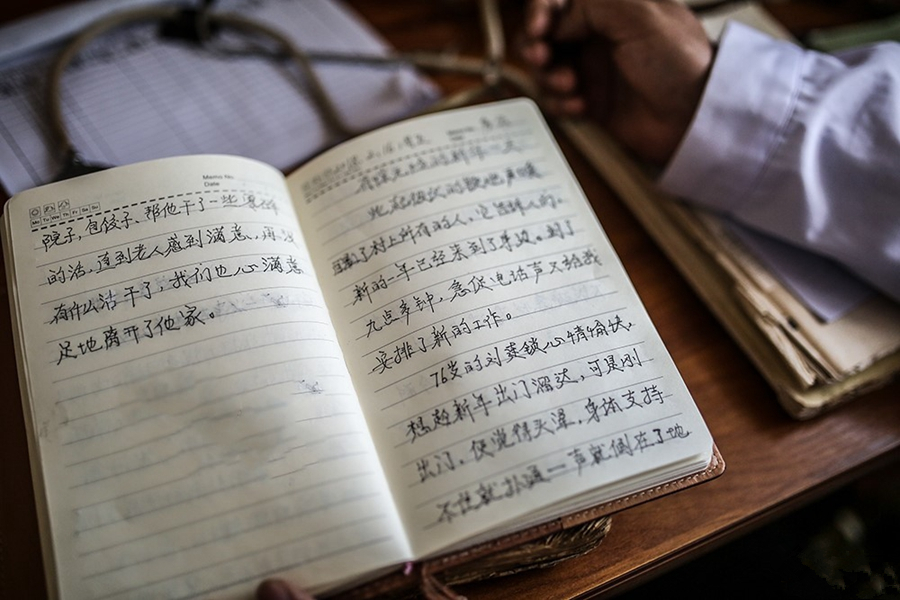 Memo No.
Date
Mo Tu We Th Fr Sa Su
院子,包饺子、帮他干了一些零碎
的活,直到老人感到满意,再没
有什么活干了,我们也心满意
足地离开了他家。
Memo No.
Date
新年
此起彼伏的歌炮声
了村上所有的人,
新的一年已经来到了身边。到了
九点多钟,急促电话声又给我
安排了新的工作。
76岁的刘菱锁,心情愉快,
想趁新年出门溜达,可是刚
出门,便觉得头晕,身体支持
不住就扑通一声就倒在了地